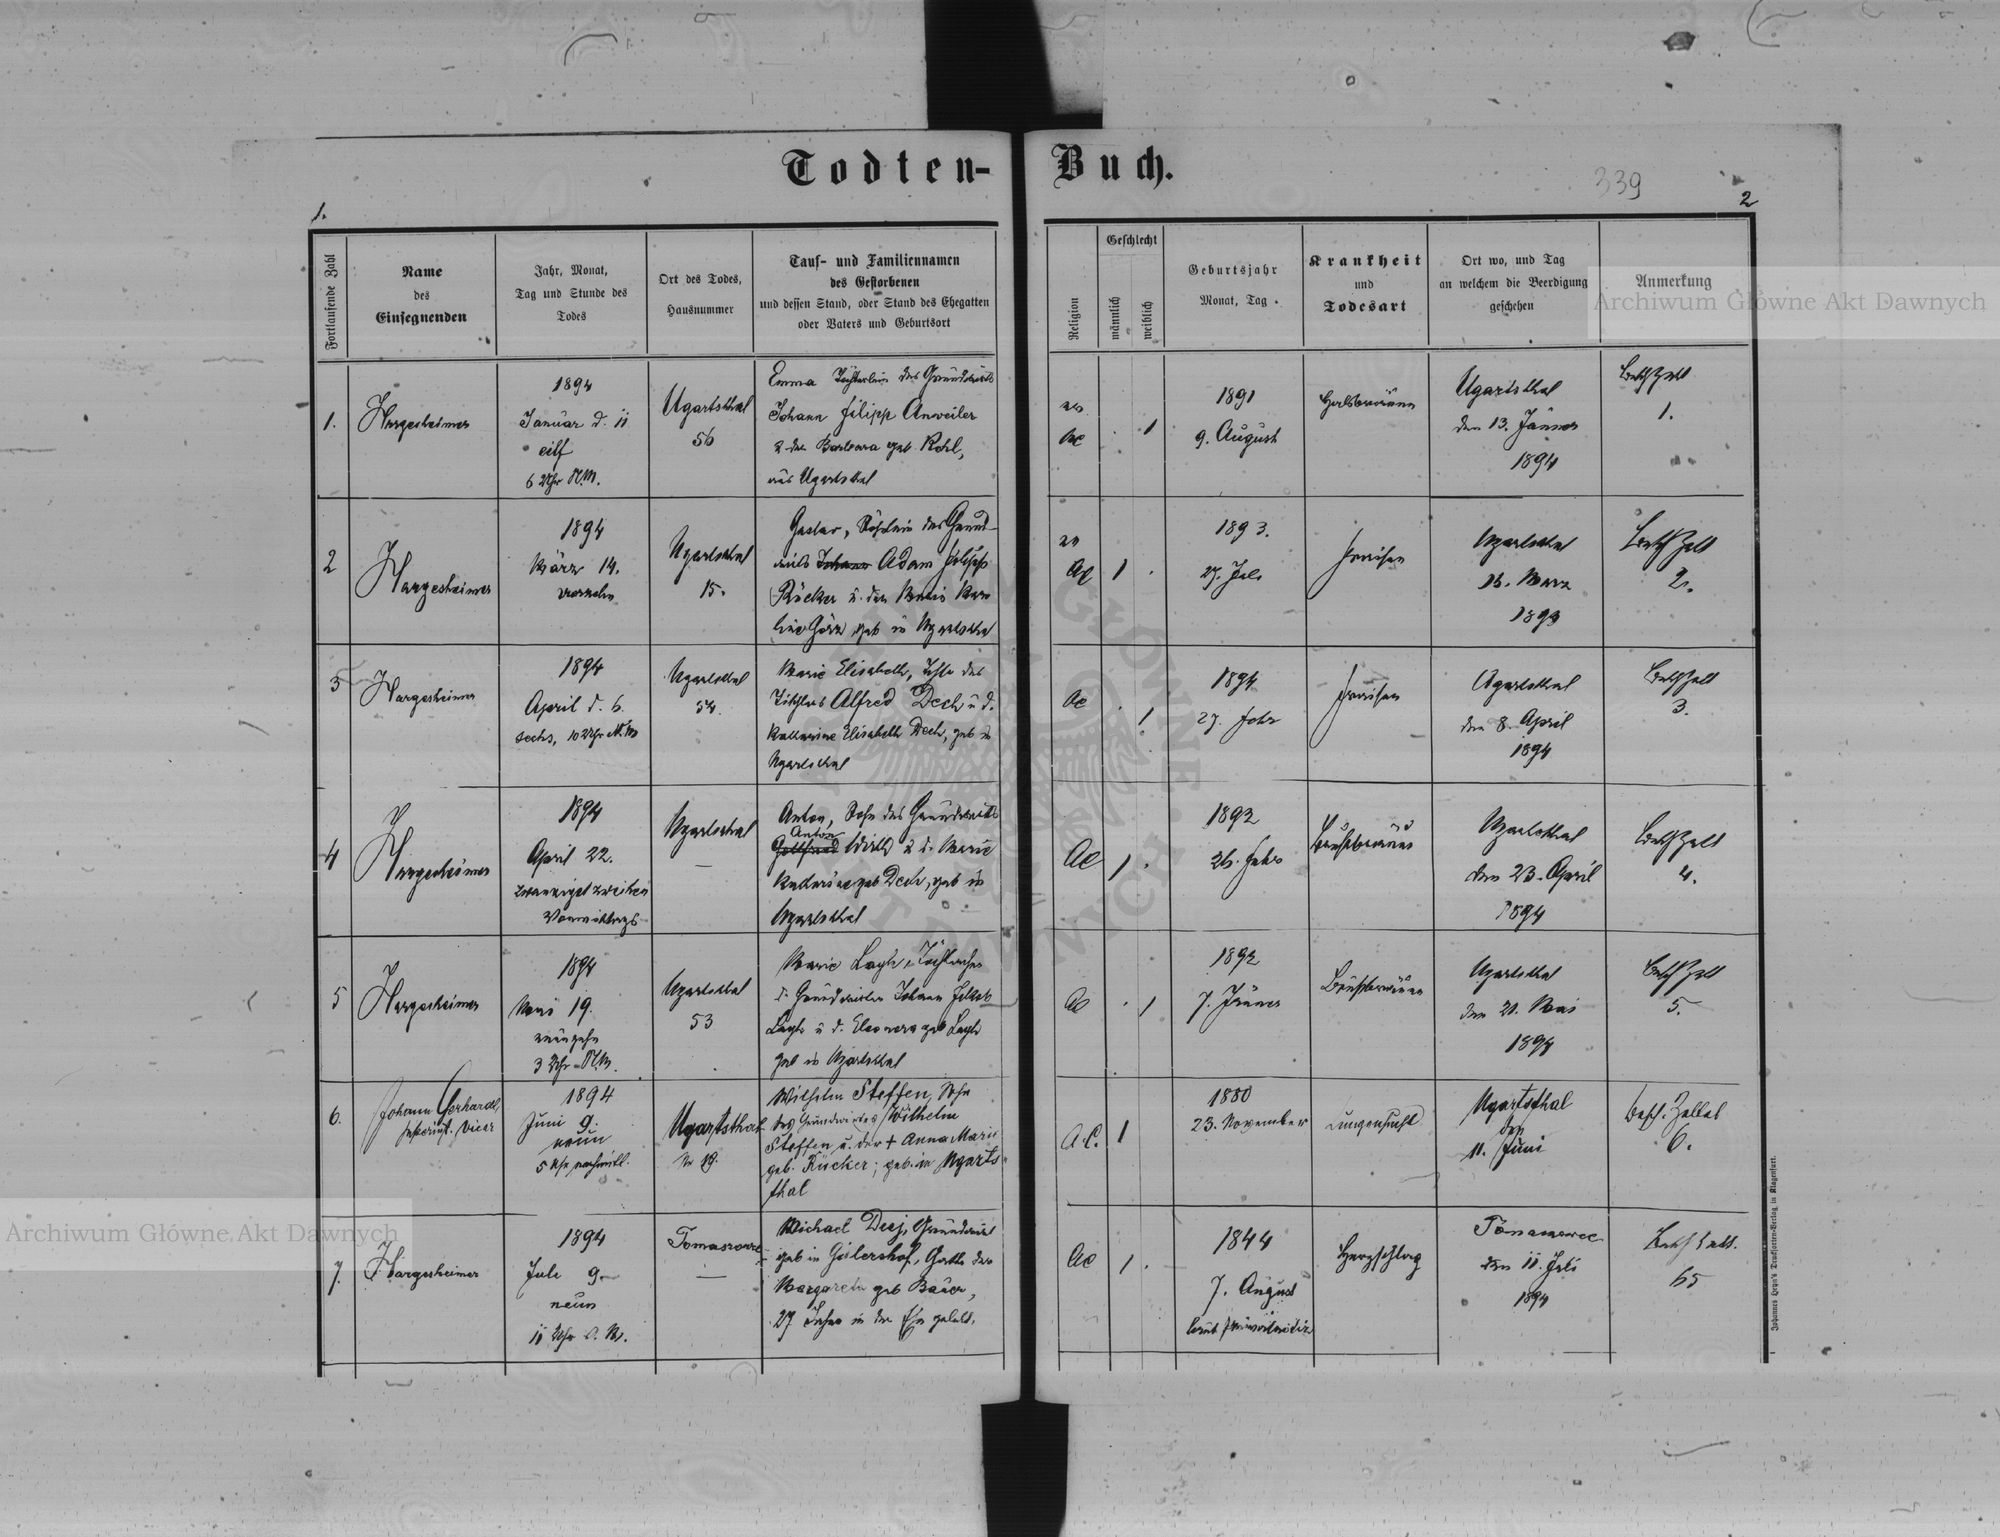 Todten-Buch.
339
1.
2
Fortlaufende Zahl
Name
des
Einsegnenden
Jahr, Monat,
Tag und Stunde des
Todes
Ort des Todes,
Hausnummer
Tauf- und Familiennamen
des Gestorbenen
und dessen Stand, oder Stand des Ehegatten
oder Vaters und Geburtsort
Religion
Geschlecht
männlich
weiblich
Geburtsjahr
Monat, Tag.
Krankheit
und
Todesart
Ort wo, und Tag
an welchem die Beerdigung
geschehen
Anmerkung
Archiwum Główne Akt Dawnych
1.
Hargesheimer
1894
Januar d. 11
eilf
6 Uhr N.M.
Ugartsthal
56
Emma Töchterlein des Grundwirts
Johann Filipp Anweiler
u. der Barbara geb. Kohl,
aus Ugartsthal
ev.
AC
1
1891
9. August
Halsbräune
Ugartsthal
den 13. Jänner
1894
1.
2
Hargesheimer
1894
März 14.
vierzehn
Ugartsthal
15.
Gustav, Söhnlein des Grund-
wirts Johann Adam Philipp
Rücker u. der Maria Karo
line Görz, geb in Ugartsthal
ev
AC
1
1893.
27. Juli
Fraisen
Ugartsthal
16. März
2.
3
Hargesheimer
1894
April d. 6.
sechs, 10 Uhr N.M
Ugartsthal
54.
Marie Elisabeth, Tochter des
Tischlers Alfred Dech u. d.
Katharine Elisabeth Dech, geb in
Ugartsthal
AC
1
1894
27. Febr
Fraisen
Ugartsthal
den 8. April
1894
3.
4
Hargesheimer
1894
April 22.
zwanzigst zweiten
Vormittags
Ugartsthal
Anton, Sohn des Grundwirts
Anton
Gottfried Wirth u d. Marie
Katharine geb Dech, geb in
Ugartsthal
AC
1
1892
26. Febr
Ugartsthal
den 23. April
1894
4.
5
Hargesheimer
1894
Mai 19.
neunzehn
3 Uhr N.M.
Ugartsthal
53
Marie
d. Grundwirten Johann Jakob
u d. Eleonora geb
geb in Ugartsthal
AC
1
1892
7. Jänner
Ugartsthal
den 21. Mai
1894
5.
6.
Johann Gerhardt,
Vicar
1894
Juni 9.
neun
5 Uhr nachmitt.
Ugartsthal
Nr 19.
Wilhelm Steffen, Sohn
des Grundwirtes Wilhelm
Steffen u. der + Anna Marie
geb. Rücker; geb. in Ugarts-
thal
A.C.
1
1880
23. November
Lungensucht
Ugartsthal
den
11. Juni
6.
7.
Hargesheimer
1894
Juli 9.
neun
11 Uhr
Michael Grundwirt
geb in Gatte der
Margarete geb Bauer,
27 Jahre in der Ehe gelebt.
AC
1
1844
7. August
Herzschlag
den 11. Juli
1894
65
Archiwum Główne Akt Dawnych
Johannes Heyn's Drucksorten-Verlag in Klagenfurt.